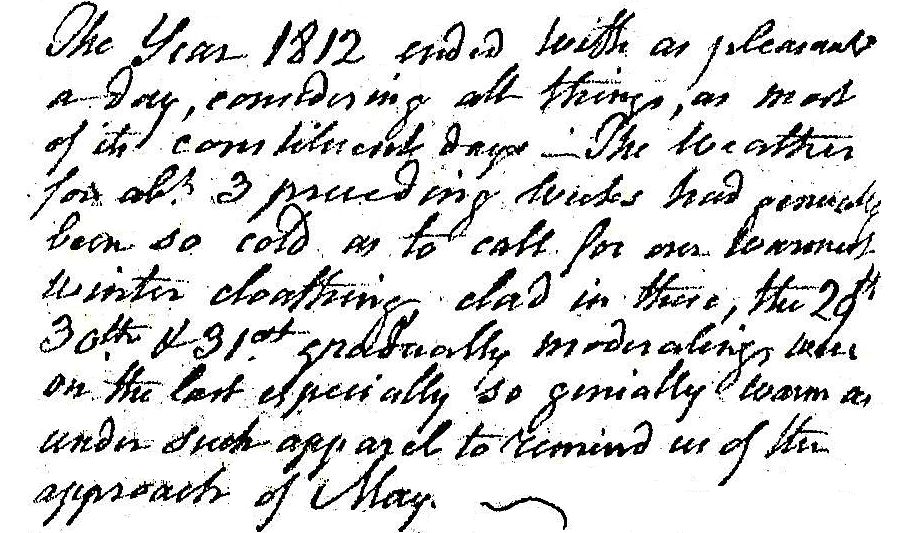 The Year 1812 ended with as pleasant
a day, considering all things, as most
of its constituent days — The Weather
for abt. 3 preceding weeks had generally
been so cold as to call for our warmest
winter cloathing clad in these, the 29th
30th & 31st gradually moderating, were
on the last especially so genially warm as
under such apparel to remind us of the
approach of May.